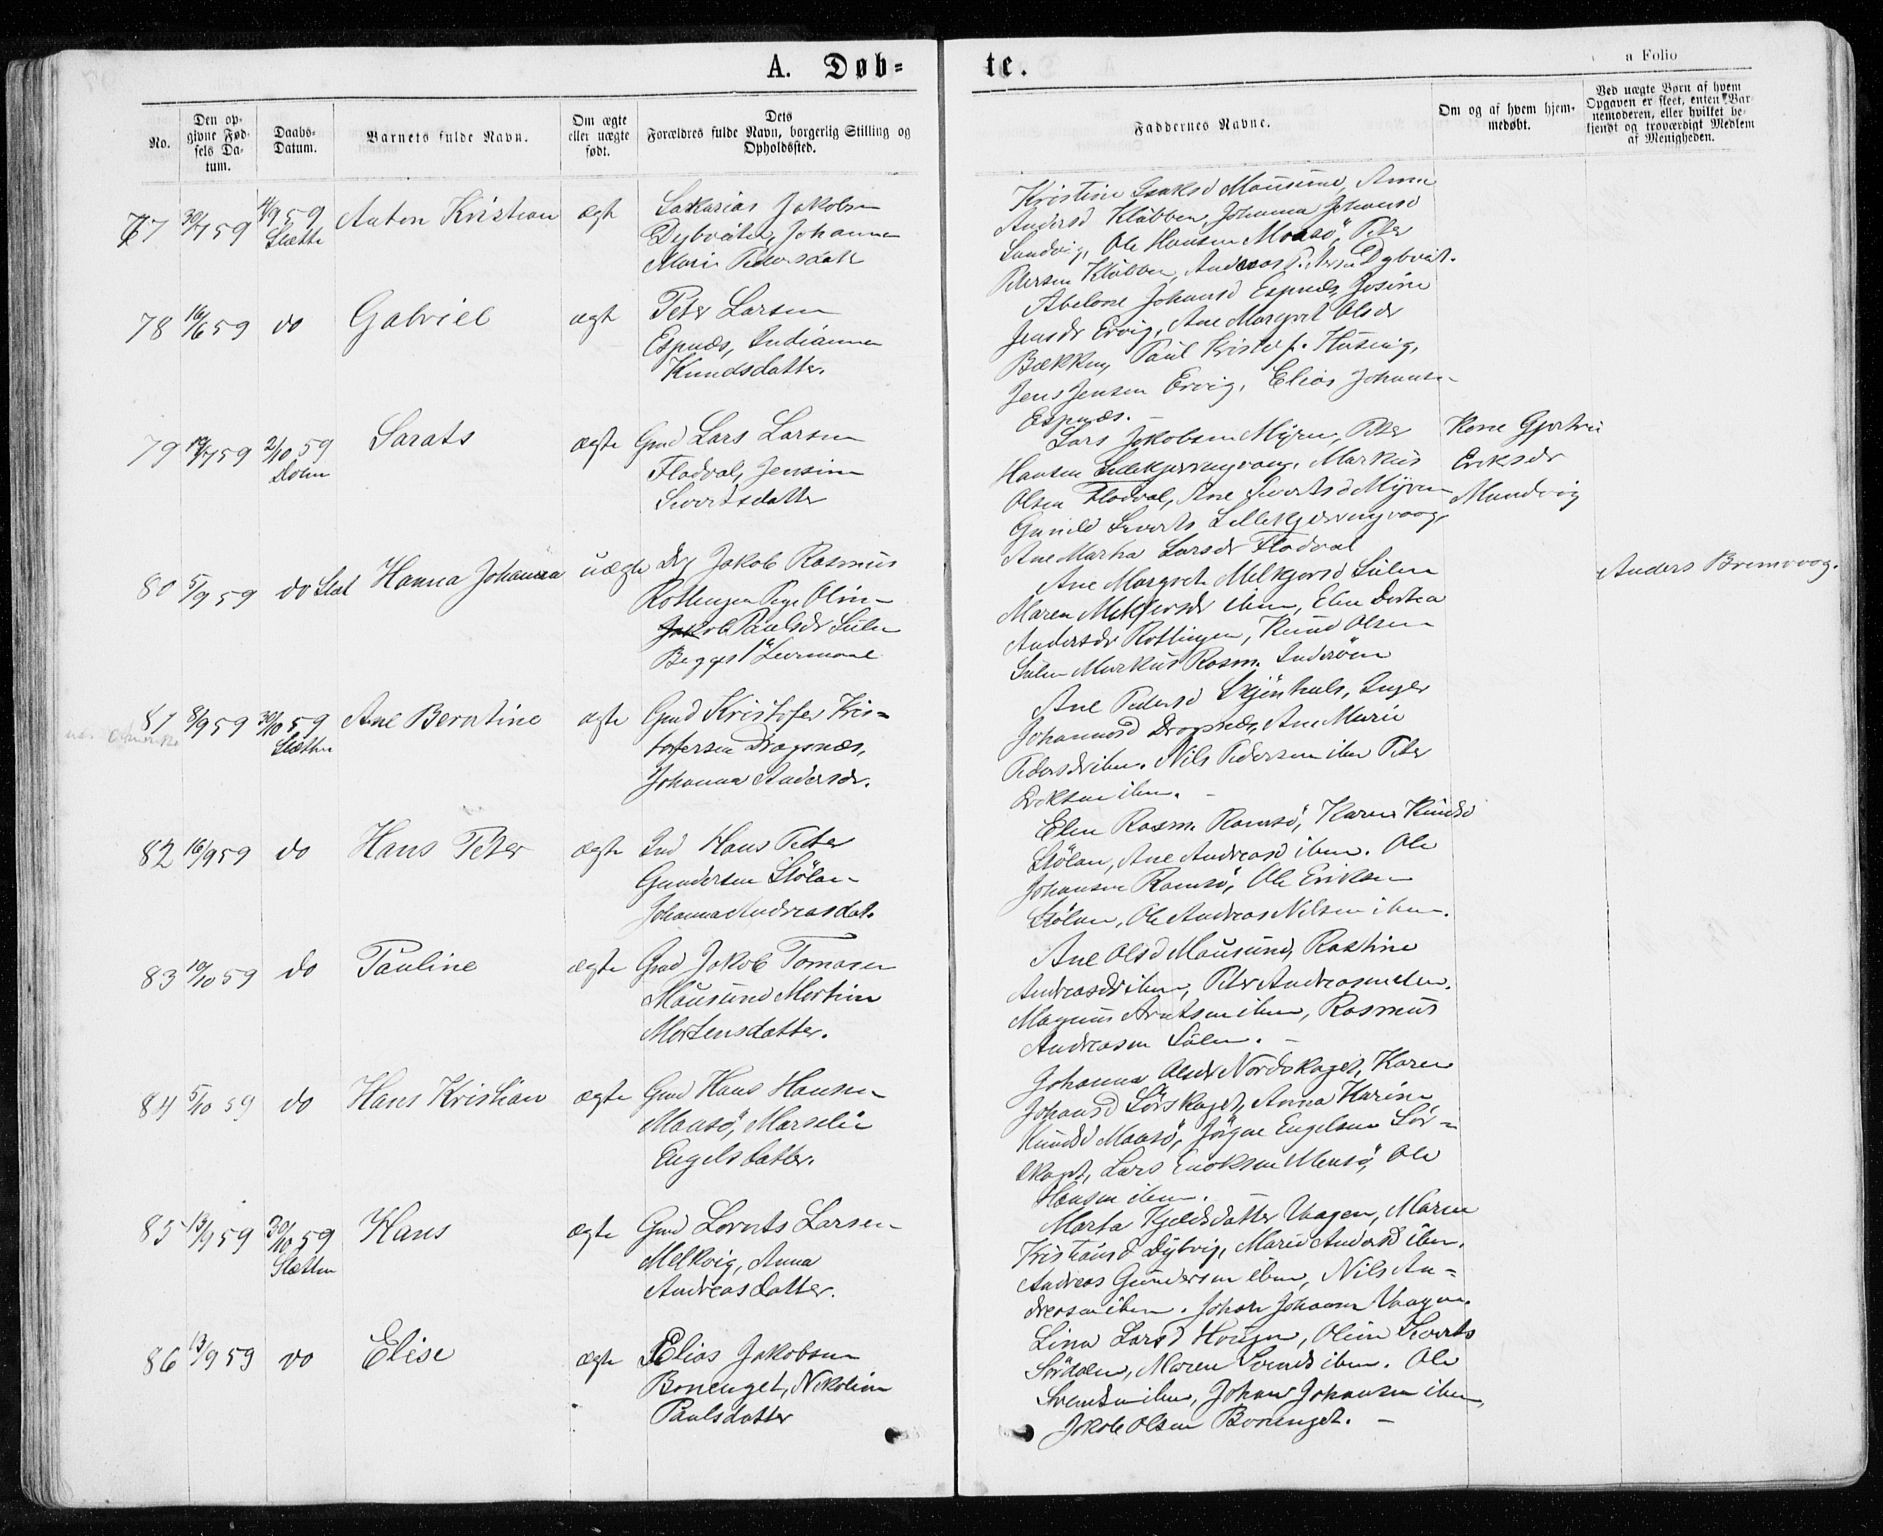 A. Døb-
te.
a Folio
No.
Den opgivne Fødsels Datum.
Daabs-Datum.
Barnets fulde Navn.
Om ægte eller uægte født.
Dets Forældres fulde Navn, borgerlig Stilling og Opholdssted.
Faddernes Navne.
Om og af hvem hjemmedøbt.
Ved uægte Børn af hvem Opgaven er skeet, enten Barnemoderen, eller hvilket bekjendt og troværdigt Medlem af Menigheden.
77 30/7 59 4/9 59 Anton Kristian ægt Sakarias Jakobsen
Slætte Dybvik, Johanna
Marie Pedersdatt
Kristine Isaksd Mausund, Anna
Andersd Klubben, Johanna Johansd
Sandvig, Ole Hansen Maasø, Peter
Petersen Klubben, Andreas Petersen Dybvik.
78 16/6 59 do Gabriel ægt Peter Larsen
Espnæs, Indianna
Knudsdatter.
Abelone Johansd Espnæs, Josine
Jensdr Ervig, Ane Margret Olsdr
Bækken, Paul Kristof. Husvig,
Jens Jensen Ervig, Elias Johansen
Espnæs.
79 19/7 59 2/10 59 Sarats ægte Gmd Lars Larsen
Dolm Flodval, Jensine
Sivertsdatter
Lars Jakobsen Myren, Peter
Hansen Lillekjerringvaag, Markus
Olsen Flodval, Ane Sivertsd Myren
Gunild Siverts Lillekjerringvaag,
Ane Marta Larsdr Flodval
Kone Gjertru
Eriksdr
Mundvig
80 5/9 59 do Slæt Hanna Johanna uægte Drg Jakob Rasmus
Rottingen Pige Olin
Jakob Paulsdr Sulen
Begges 1ste Leiermaal
Ane Margret Melkjorsd Sulen
Maren Melkjorsdr ibm, Elen Dortea
Andersdr Rottingen, Knud Olsen
Sulen Markus Rasm. Inderøen
Anders Bremvog.
81 8/9 59 30/10 59 Ane Berntine ægte Gmd Kristofer Kris-
Slætten tofersen Dragsnæs,
Johanna Andersdr.
Ane Pedersd Skjønhals, Inger
Johannesd Dragsnæs, Ane Marie
Pedersdr ibm. Nils Pedersen ibm Peter
Eriksen ibm.
82 16/9 59 do Hans Peter ægte Ind Hans Peter
Gundersen Stølan
Johanna Andreasdat.
Elen Rasm. Ramsø, Karen Knudsd
Stølan, Ane Andreasd ibm. Ole
Johansen Ramsø, Ole Eriksen
Stølan, Ole Andreas Nilsen ibm.
83 10/10 59 do Pauline ægte Gmd Jakob Tomasen
Mausund Mortine
Mortensdatter.
Ane Olsd Mausund, Rastine
Andreasdr ibm, Peter Andreasen ibm.
Magnus Arntsen ibm, Rasmus
Andreasen Sulen.
84 5/10 59 do Hans Kristian ægte Gmd Hans Hansen
Maasø, Marselie
Engelsdatter.
Johanna Olsdr Nordskaget, Karen
Johansd Sørskaget, Anna Karine
Knudsd Maasø, Jørgne Engelsen Sør-
skaget, Lars Enoksen Maasø, Ole
Hansen ibm.
85 13/9 59 30/10 59 Hans ægte Gmd Lornts Larsen
Slætten Melkvig, Anna
Andreasdatter.
Marta Kjeldsdatter Vaagen, Maren
Kristiansd Dybvig, Marie Andersd ibm.
Andreas Gundersen ibm, Nils An-
dreasen ibm. Johan Johansen Vaagen.
86 13/9 59 do Elise ægte Elias Jakobsen
Bonenget, Nikoline
Paulsdatter
Lina Larsd Haugen, Oline Siverts
Sørdalen, Maren Svendsd ibm. Ole
Svendsen ibm, Johan Johansen ibm,
Jakob Olsen Bonenget.